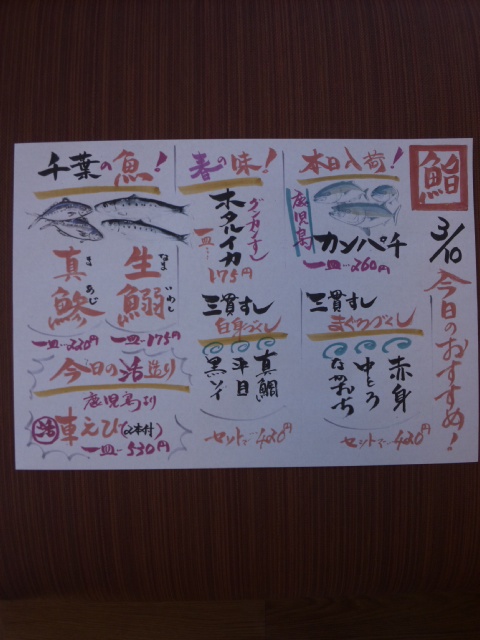 鮨
3/10
今日のおすすめ!
本日入荷!
鹿児島
カンパチ
一皿…260円
三貫すし
まぐろづくし
赤身
中とろ
なかおち
セットで…420円
春の味!
ホタルイカ
グンカンすし
一皿…175円
三貫すし
白身づくし
真鯛
平目
黒ソイ
セットで…420円
千葉の魚!
生鰯
なまいわし
一皿…175円
真鯵
まあじ
一皿…220円
今日の活造り
鹿児島より
活車えび(2本付)
一皿…530円